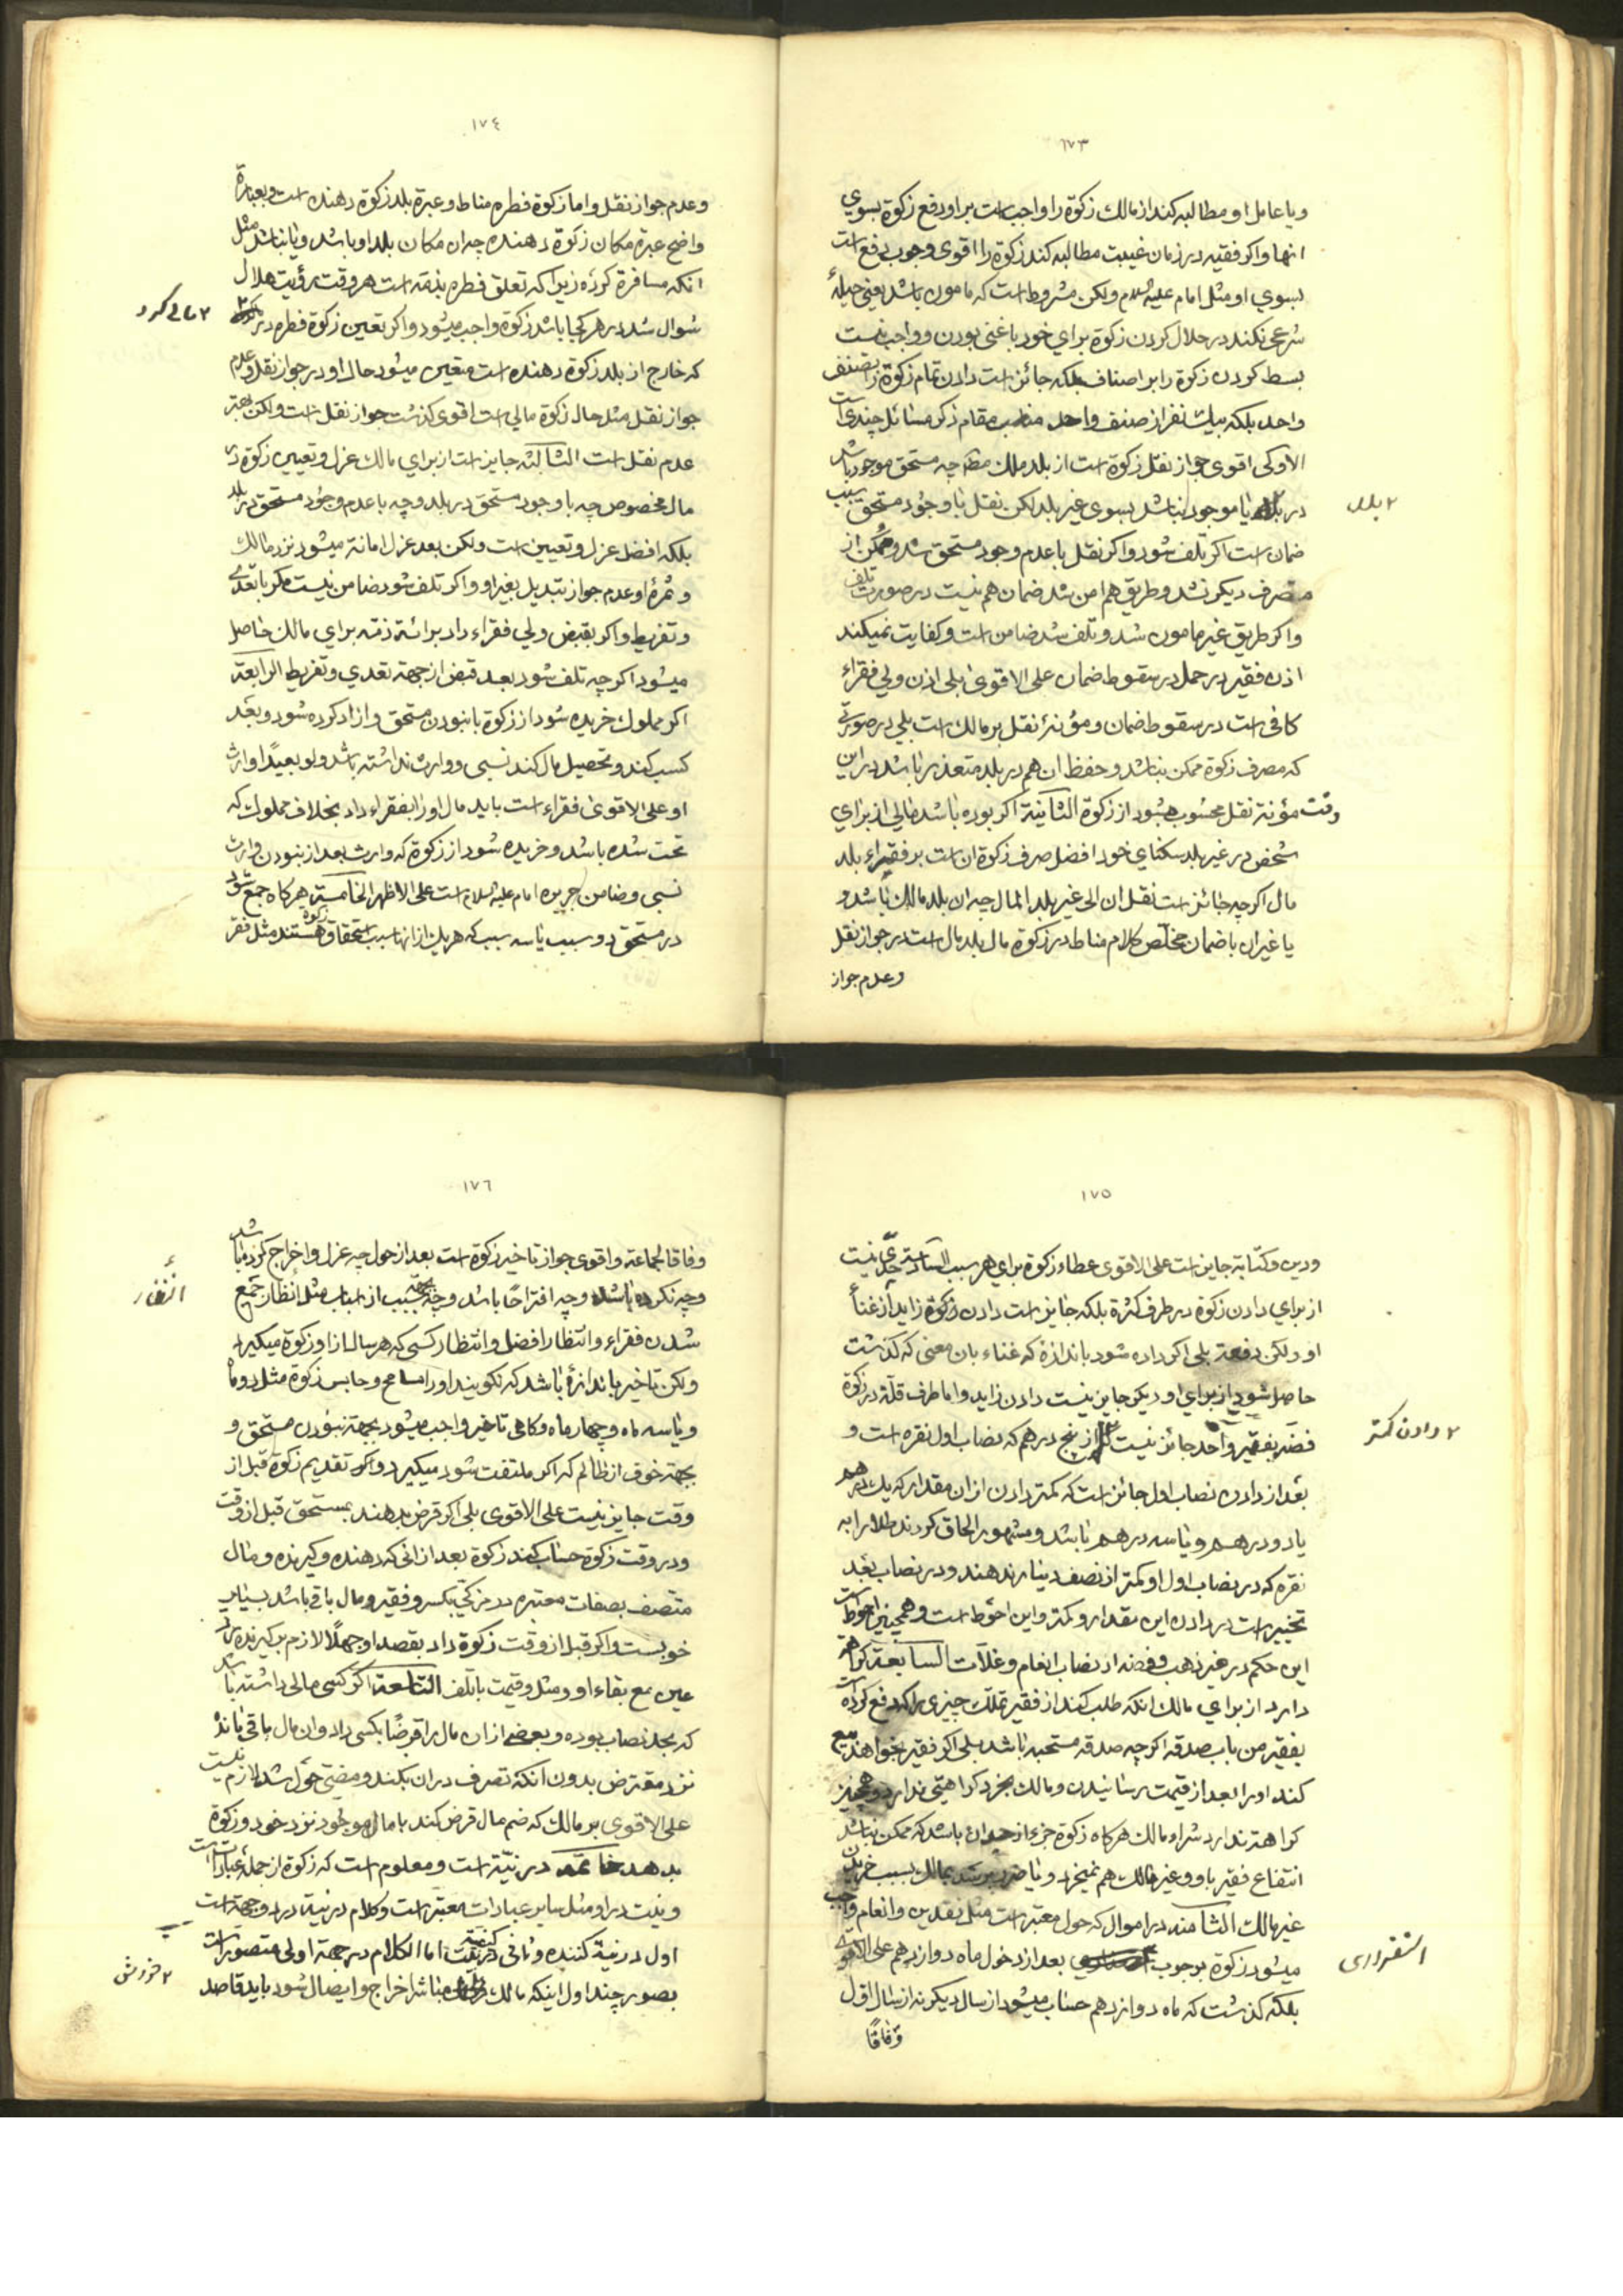 ١٧٣
ویا عامل او مطالبه کند از مالک زکوة را واجب است بر او دفع زکوة بسوي
انها واکر فقیه در زمان غیبت مطالبه کند زکوة را اقوی وجوب دفع است
بسوي او مثل امام علیه السلام ولکن مشروط است که مامون باشد یعنی حیلهٔ
شرعی نکند در حلال کردن زکوة براي خود با غنی بودن و واجب نیست
بسط کردن زکوة را بر اصناف بلکه جائز است دادن تمام زکوة را بصنف
واحد بلکه بیک نفر از صنف واحد مناسب مقام ذکر مسائل چندی است
الاولی اقوی جواز نقل زکوة است از بلد ملک مطم چه مستحق موجود باشد
در یا موجود نباشد بسوی غیر بلد لکن نقل با وجود مستحق سبب
٢ بلد
ضمان است اکر تلف شود واکر نقل با عدم وجود مستحق شد وممکن از
مصرف دیکر نشد وطریق هم امن شد ضمان هم نیست در صورت تلف
واکر طریق غیر مامون شد وتلف شد ضامن است وکفایت نمیکند
اذن فقیر در حمل در سقوط ضمان علی الاقوی بلی اذن ولی فقراء
کافی است در سقوط ضمان ومؤنهٔ نقل بر مالک است بلی در صورتی
که مصرف زکوة ممکن نباشد وحفظ ان هم در بلد متعذر باشد در این
وقت مؤنة نقل محسوب میشود از زکوة الثانیة اکر بوده باشد مالی از براي
شخص در غیر بلد سکناي خود افضل صرف زکوة ان است بر فقراء بلد
مال اکرچه جائز است نقل ان الی غیر بلد المال چه ان بلد مالک باشد و
یا غیر ان با ضمان مخلّص کلام مناط در زکوة مال بلد مال است در جواز نقل
وعدم جواز
١٧٤
وعدم جواز نقل واما زکوة فطره مناط وعبرة بلد زکوة دهنده است وبعبارة
واضح عبرة مکان زکوة دهنده چه ان مکان بلد او باشد ویا نباشد مثل
انکه مسافرة کرده زیرا که تعلق فطره بذمه است هر وقت رؤیت هلال
شوال شد در هر کجا باشد زکوة واجب میشود واکر تعین زکوة فطره در
٢ مالی کرد
که خارج از بلد زکوة دهنده است متعین میشود حال او در جواز نقل وعدم
جواز نقل مثل حال زکوة مالی است اقوی کذشت جواز نقل است ولکن بهتر
عدم نقل است الثالثة جایز است از براي مالک عزل وتعیین زکوة در
مال مخصوص چه با وجود مستحق در بلد وچه با عدم وجود مستحق در بلد
بلکه افضل عزل وتعیین است ولکن بعد عزل امانة میشود نزد مالک
وثمرهٔ او عدم جواز تبدیل بغیر او واکر تلف شود ضامن نیست مکر با تعدی
وتفریط واکر بقبض ولی فقراء داد برائة ذمّه براي مالک حاصل
میشود اکرچه تلف شود بعد قبض از جهة تعدي وتفریط الرابعة
اکر مملوک خریده شود از زکوة با نبودن مستحق وازاد کرده شود وبعد
کسب کند وتحصیل مال کند نسبی ووارث نداشته باشد ولو بعیدًا وارث
او علی الاقوی فقراء است باید مال او را بفقراء داد بخلاف مملوک که
تحت شده باشد وخریده شود از زکوة که وارث بعد از نبودن وارث
نسبی وضامن جریره امام علیه السلام است علی الاظهر الخامسة هرکاه جمع شود
در مستحق دو سبب یا سه سبب که هریک از انها سبب استحقاق زکوة هستند مثل فقر
١٧٥
ودین وکتابة جایز است علی الاقوی عطاء زکوة براي هر سبب السادسة حدّی نیست
از براي دادن زکوة در طرف کثرة بلکه جایز است دادن زکوة زاید از غناء
او ولکن دفعة بلی اکر داده شود باندازهٔ که غناء بان معنی که کذشت
حاصل شود از براي او دیکر جایز نیست دادن زاید واما طرف قلّة در زکوة
فضه بفقیر واحد جائز نیست از پنج درهم که نصاب اول نقره است و
٢ دادن کمتر
بعد از دادن نصاب اول جائز است که کمتر دادن از ان مقدار که یک درهم
یا دو درهم ویا سه درهم باشد ومشهور الحاق کردند طلا را به
نقره که در نصاب اول او کمتر از نصف دینار ندهند ودر نصاب بعد
تخییر است در دادن این مقدار وکمتر واین احوط است وهمچنین احوط است
این حکم در غیر ذهب وفضه از نصاب انعام وغلّات السابعة کراهة
دارد از براي مالک انکه طلب کند از فقیر تملک چیزی را که دفع کرده است
بفقیر من باب صدقه اکرچه صدقه مستحبه باشد بلی اکر فقیر بخواهد بیع
کند او را بعد از قیمت رسانیدن ومالک بخرد کراهتی ندارد وهمچنین
کراهة ندارد شراء مالک هرکاه زکوة جزء از حیوان باشد که ممکن نباشد
انتفاع فقیر باو وغیر مالک هم نمیخرد ویا ضرر برسد بمالک بسبب خریدن
غیر مالک الثامنه در اموال که حول معتبر است مثل نقدین وانعام واجب
میشود زکوة بوجوب بعد از دخول ماه دوازدهم علی الاقوی
استقراری
بلکه کذشت که ماه دوازدهم حساب میشود از سال دیکر نه از سال اوّل
وفاقًا
١٧٦
وفاقا لجماعة واقوی جواز تاخیر زکوة است بعد از حول چه عزل واخراج کرده باشد
وچه نکرده باشد وچه اقتراحًا باشد وچه بجهة سبب از اسباب مثل انتظار جمع
انتظار
شدن فقراء وانتظار افضل وانتظار کسی که هر سال از او زکوة میکیرد
ولکن تاخیر باندازهٔ باشد که نکویند او را مسامح وحابس زکوة مثل دو ماه
ویا سه ماه وچهار ماه وکاهی تاخیر واجب میشود بجهة نبودن مستحق و
بجهة خوف از ظالم که اکر ملتفت شود میکیرد واکر تقدیم زکوة قبل از
وقت جایز نیست علی الاقوی بلی اکر قرض بدهند بمستحق قبل از وقت
ودر وقت زکوة حساب کند زکوة بعد از انی که دهنده وکیرنده ومال
متصف بصفات معتبره در مزکّی بکسر وفقیر ومال باقی باشد بسیار
خوبست واکر قبل از وقت زکوة داد بقصد او جهلًا لازم بر کیرنده ردّ
عین مع بقاء او ومثل وقیمت با تلف التاسعة اکر کسی مالی داشته باشد
که بحد نصاب بوده وبعضی از ان مال را قرضًا بکسی داد وان مال باقی ماند
نزد مقترض بدون انکه تصرف در ان بکند ومضیّ حول شد لازم نیست
علی الاقوی بر مالک که ضم مال قرض کند با مال موجود نزد خود وزکوة
بدهد خاتمة در نیّة است ومعلوم است که زکوة از جمله عبادات است
ونیت در او مثل سایر عبادات معتبر است وکلام در نیة در دو جهة است
اول در نیة کننده وثانی در کیفیة نیت اما الکلام در جهة اولی متصور است
بصور چند اول اینکه مالک مباشر اخراج وایصال شود باید قاصد
٢ خودش